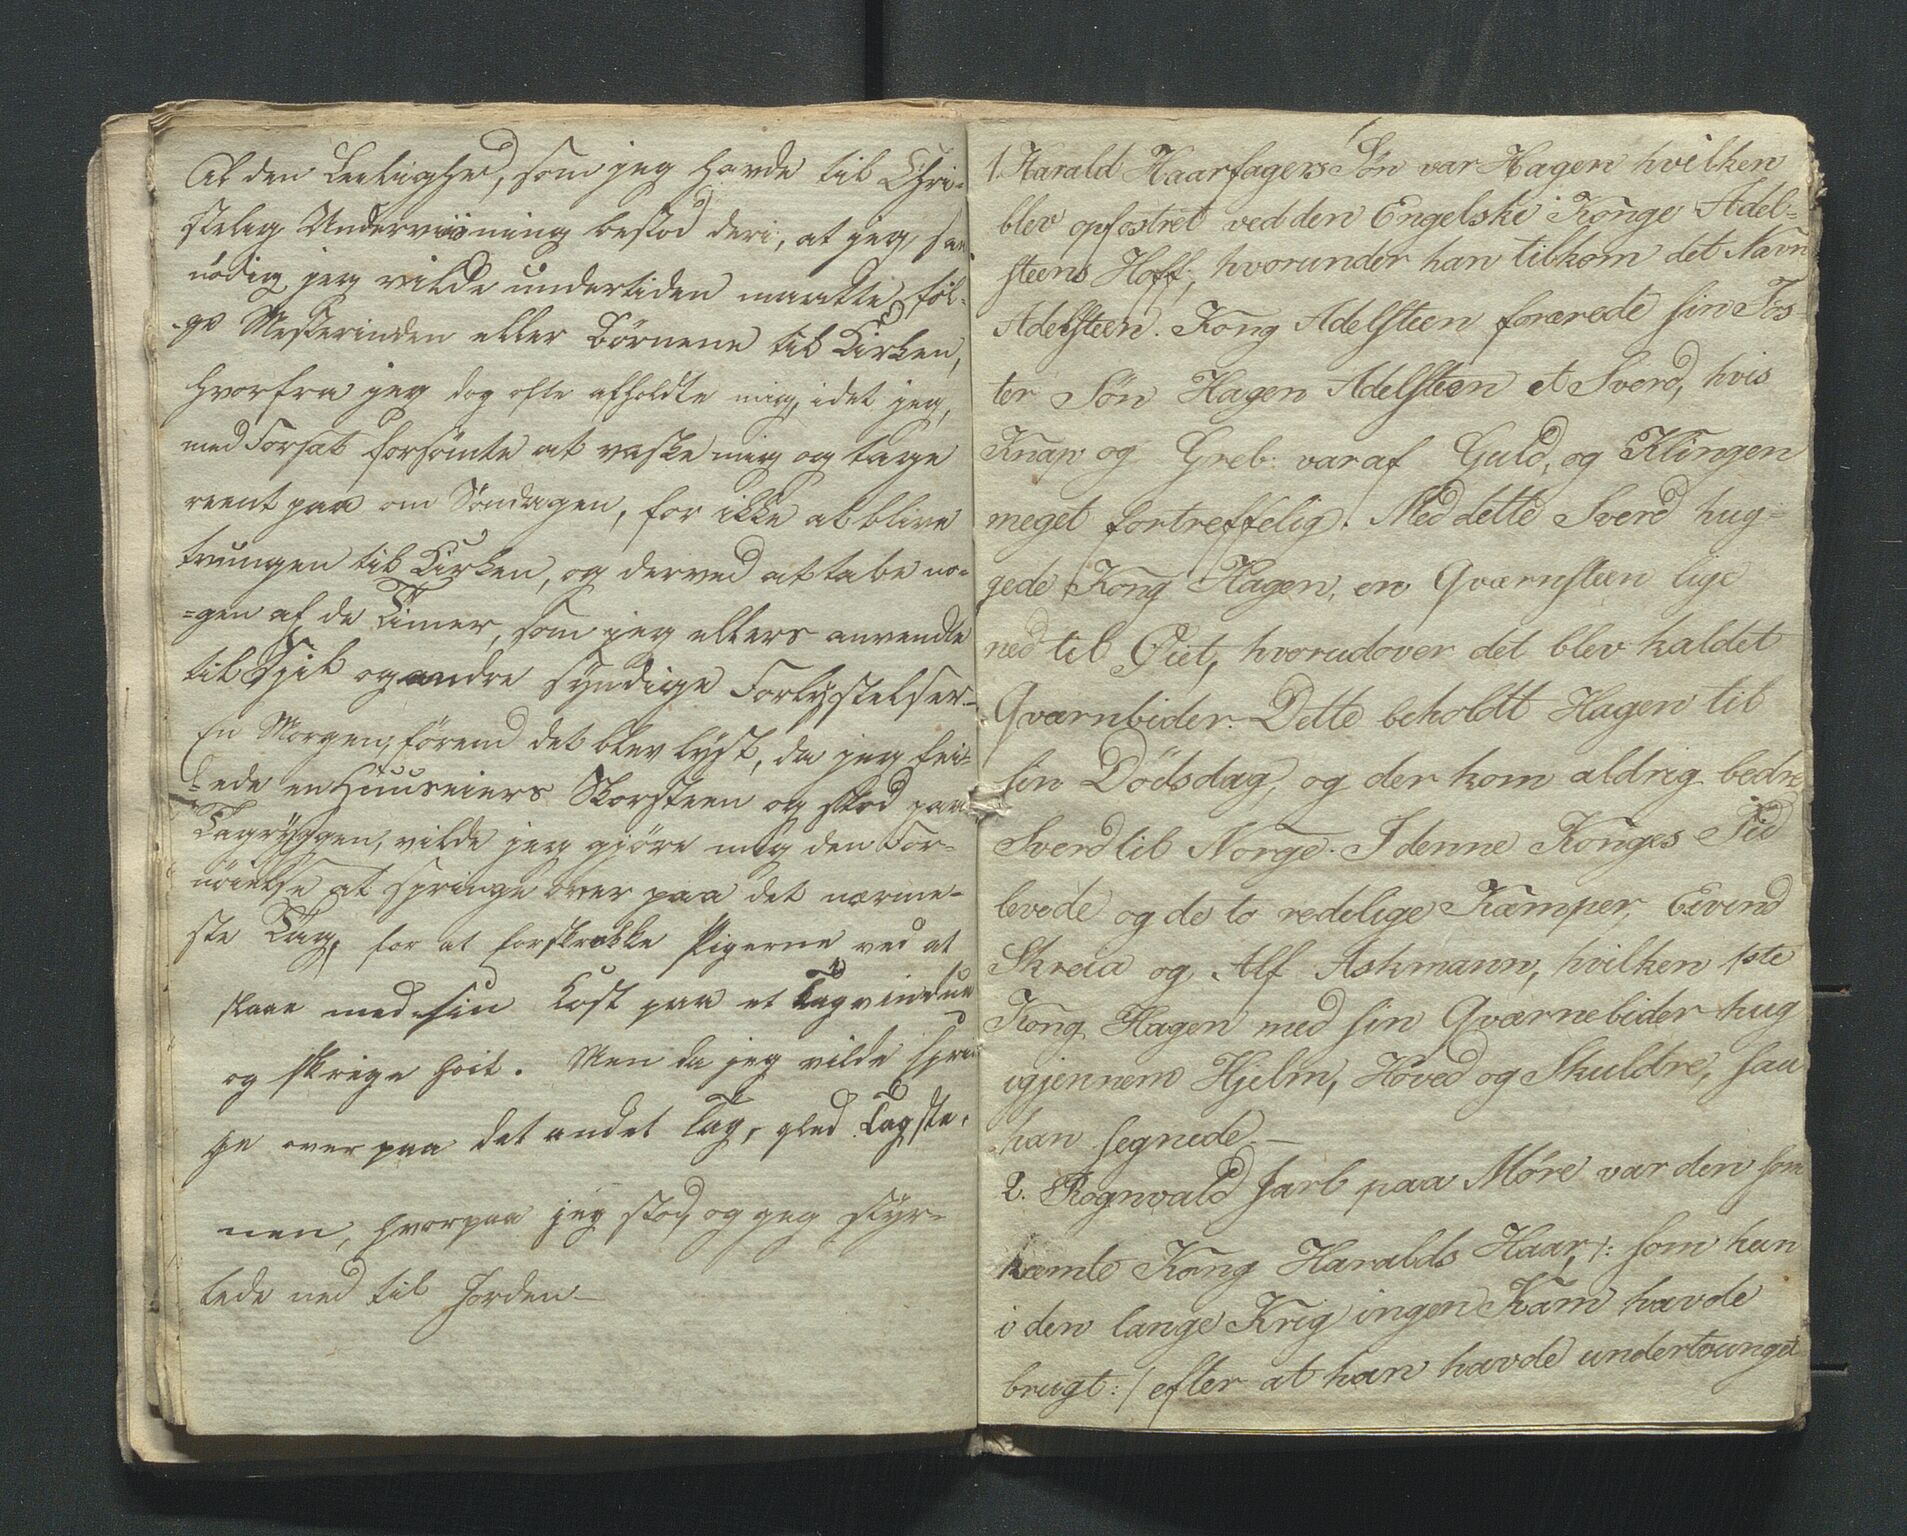 Al den Leilighed, som jeg havde til Chri-
stelig Underviisning bestod deri, at jeg, saa
nödig jeg vilde undertiden maatte föl-
-ge Mesterinden eller Börnene til Kirken,
hvorfra jeg dog ofte afholdte mig, idet jeg,
med Forsæt forsömte at vaske mig og tage
reent paa om Söndagen, for ikke at blive
tvungen til Kirken, og derved at tabe no-
=gen af de Timer, som jeg ellers anvendte
til Spil og andre syndige Forlystelser.
En Morgen, förend det blev lyst, da jeg fei-
=ede en Huuseiers Skorsteen og stod paa
Tagryggen, vilde jeg gjöre mig den For-
nöielse at springe over paa det nærme-
ste Tag, for at forskrække Pigerne ved at
slaae med sin Kost paa et Tagvindue
og skrige höit. Men da jeg vilde sprin
ge over paa det andet Tag, gled Tagste-
nen, hvorpaa jeg stod, og jeg styr-
tede ned til Jorden—
1. Harald Haarfagers Søn var Hagen hvilken
blev opfostret ved den Engelske Konge Adel=
steens Hoff, hvorunder han tilkom det Navn
Adelsteen. Kong Adelsteen forærede sin Fos-
ter Søn Hagen Adelsteen et Sverd, hvis
Knap og Greb var af Guld, og Klingen
meget fortreffelig. Med dette Sverd hug-
gede Kong Hagen, en Qværnsteen lige
ned til Øiet, hvorudover det blev kaldet
Qværnbider. Dette beholdt Hagen til
sin Dödsdag, og der kom aldrig bedre
Sverd til Norge. I denne Konges Tid
levede og de to redelige Kæmper, Eivind
Skreia og Alf Askmann, hvilken 1ste
Kong Hagen med sin Qværnebider hug
igjennem Hjelm, Hoved og Skuldre, saa
han segnede.—
2. Rognvald Jarl paa Möre var den som
kæmte Kong Haralds Haar, /: som han
i den lange Krig ingen Kam havde
brugt :/ efter at han havde undertvunget